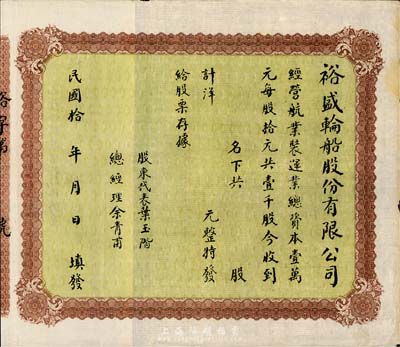 裕盛輪船股份有限公司
經營航業裝運業總資本壹萬
元每股拾元共壹千股今收到
名下共 股
計洋 元整特發
給股票存據
股東代表葉玉階
總經理余青甫
民國拾 年 月 日 填發
裕字第 號